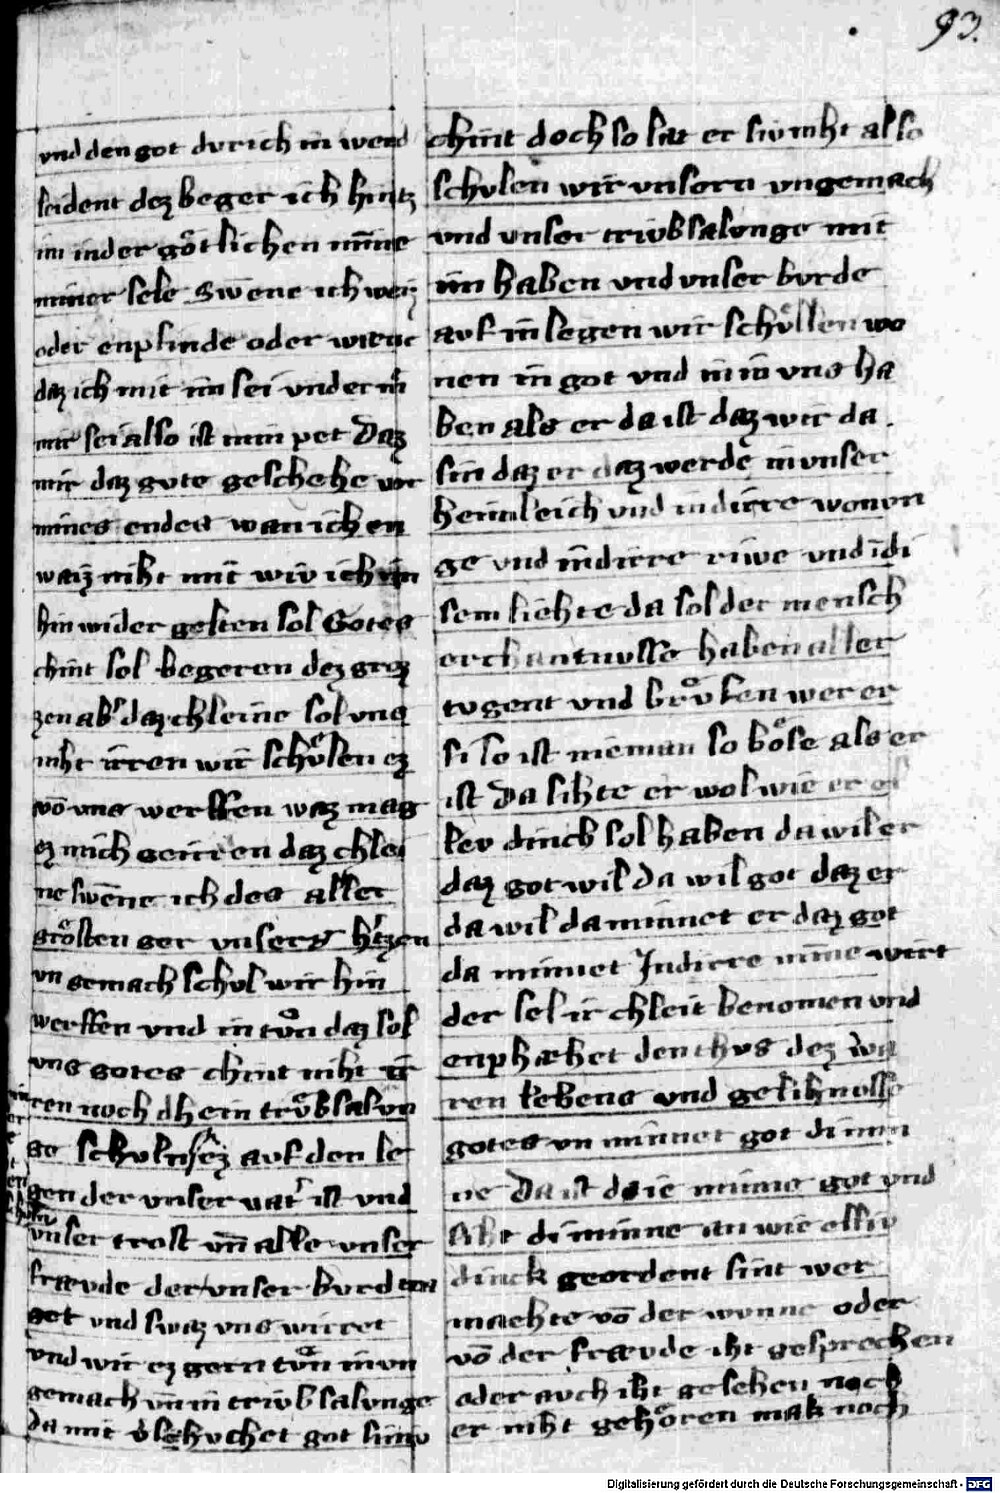 93.
vnd den got dvrich in werd
leident dez beger ich hintz
im in der gőtlichen minne
miner sele Swēne ich weiz
oder enpfinde oder
daz ich mit im sei vnd er mī
mir sei also ist min pet Daz
mir daz gvte geschehe vor
mines endes wan ich en
waiz niht mit wiv ich im
hin wider gelten sol Gotes
chint sol begeren dez groz
zen ab daz chleine sol vns
niht irren wir schvͦlen ez
vō vns werffen waz mag
ez mich geirren daz chlei
ne swēne ich des aller
grősten ger vnsers hʼtzen
vngemach schvl wir hin
werffen vnd in tvͦn daz sol
vns gotes chint niht ir
ren noch dhein trvͦbsalvn
ge schvln ez avf den le
gen der vnser vatʼ ist vnd
vnser trost vn̄ alle vnser
fraevde der vnser bvrd
got vnd swaz vns wirret
vnd wir ez gern tvͦn in vn
gemach vn̄ in trivbsalvnge
da mit vʼslehvchet got siniv
chint doch so lat er siv niht also
schvlen wir vnsern vngemach
vnd vnser trivbsalvnge mit
im haben vnd vnser bvrde
avf in legen wir schvͦllen wo
nen in got vnd in in vns ha
ben als er da ist daz wir da
sin daz er daz werde in vnser
heimleich vnd in dirre wonvn
ge vnd in dirre riwe vnd i di
sem liehte da sol der mensch
erchantnvsse haben aller
tvgent vnd brvͦfen wer er
si so ist nieman so bőse als er
ist Da sihte er wol wie er
lev dinch sol haben da wil er
daz got wil Da wil got daz er
da wil da minnet er daz got
da minnet In dirre minne wirt
der sel ir chleit benomen vnd
enphaehet den chvs dez wa
ren lebens vnd gelihnvsse
gotes vn minnet got di min
ne Da ist d ie minne got vnd
siht di minne an wie elliv
dinck geordent sint wer
maehte vō der wunne oder
vō der fraevde iht gesprechen
oder avch iht gesehen noch
er niht gehőren mak noch
Digitalisierung gefördert durch die Deutsche Forschungsgemeinschaft - DFG